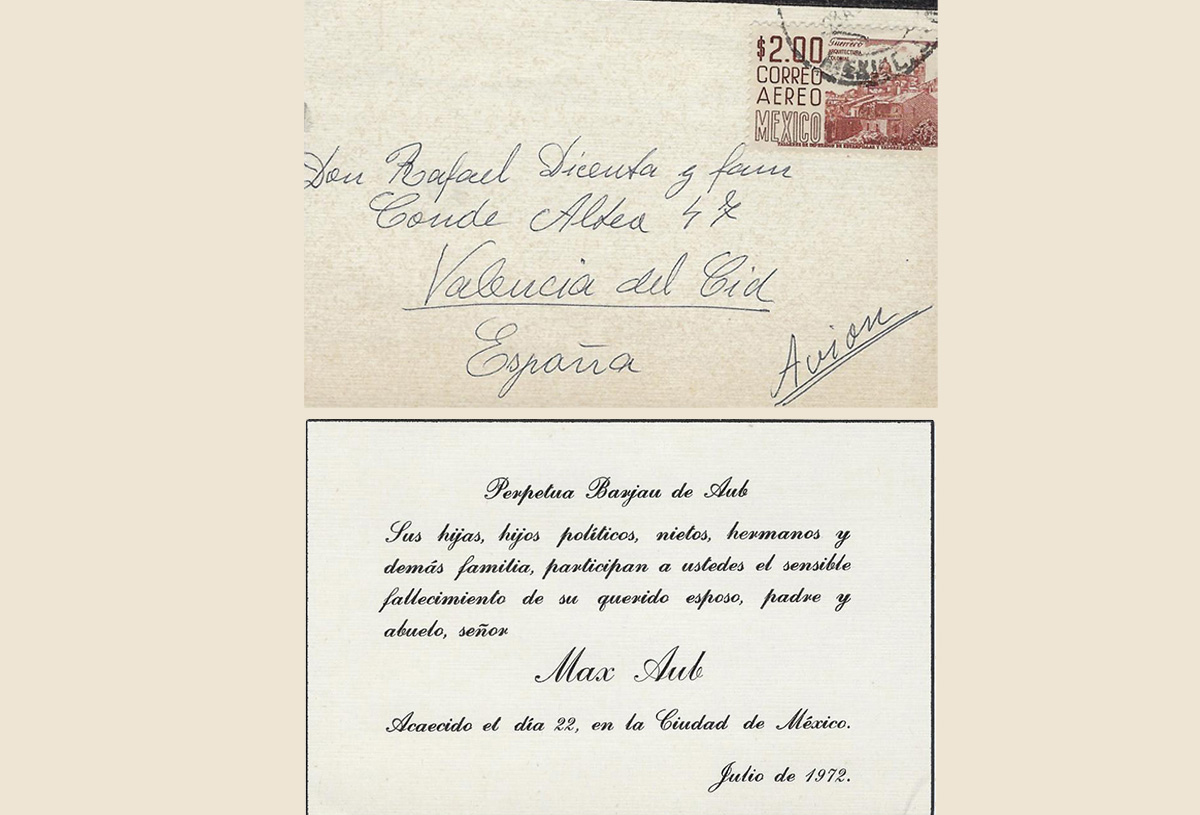 $2.00
CORREO
AEREO
MEXICO
Guerrero
ARQUITECTURA
COLONIAL
MEXICO
Don Rafael Dicenta y fam
Conde Altea 47
Valencia del Cid
España
Avion
Perpetua Barjau de Aub
Sus hijas, hijos políticos, nietos, hermanos y
demás familia, participan a ustedes el sensible
fallecimiento de su querido esposo, padre y
abuelo, señor
Max Aub
Acaecido el día 22, en la Ciudad de México.
Julio de 1972.